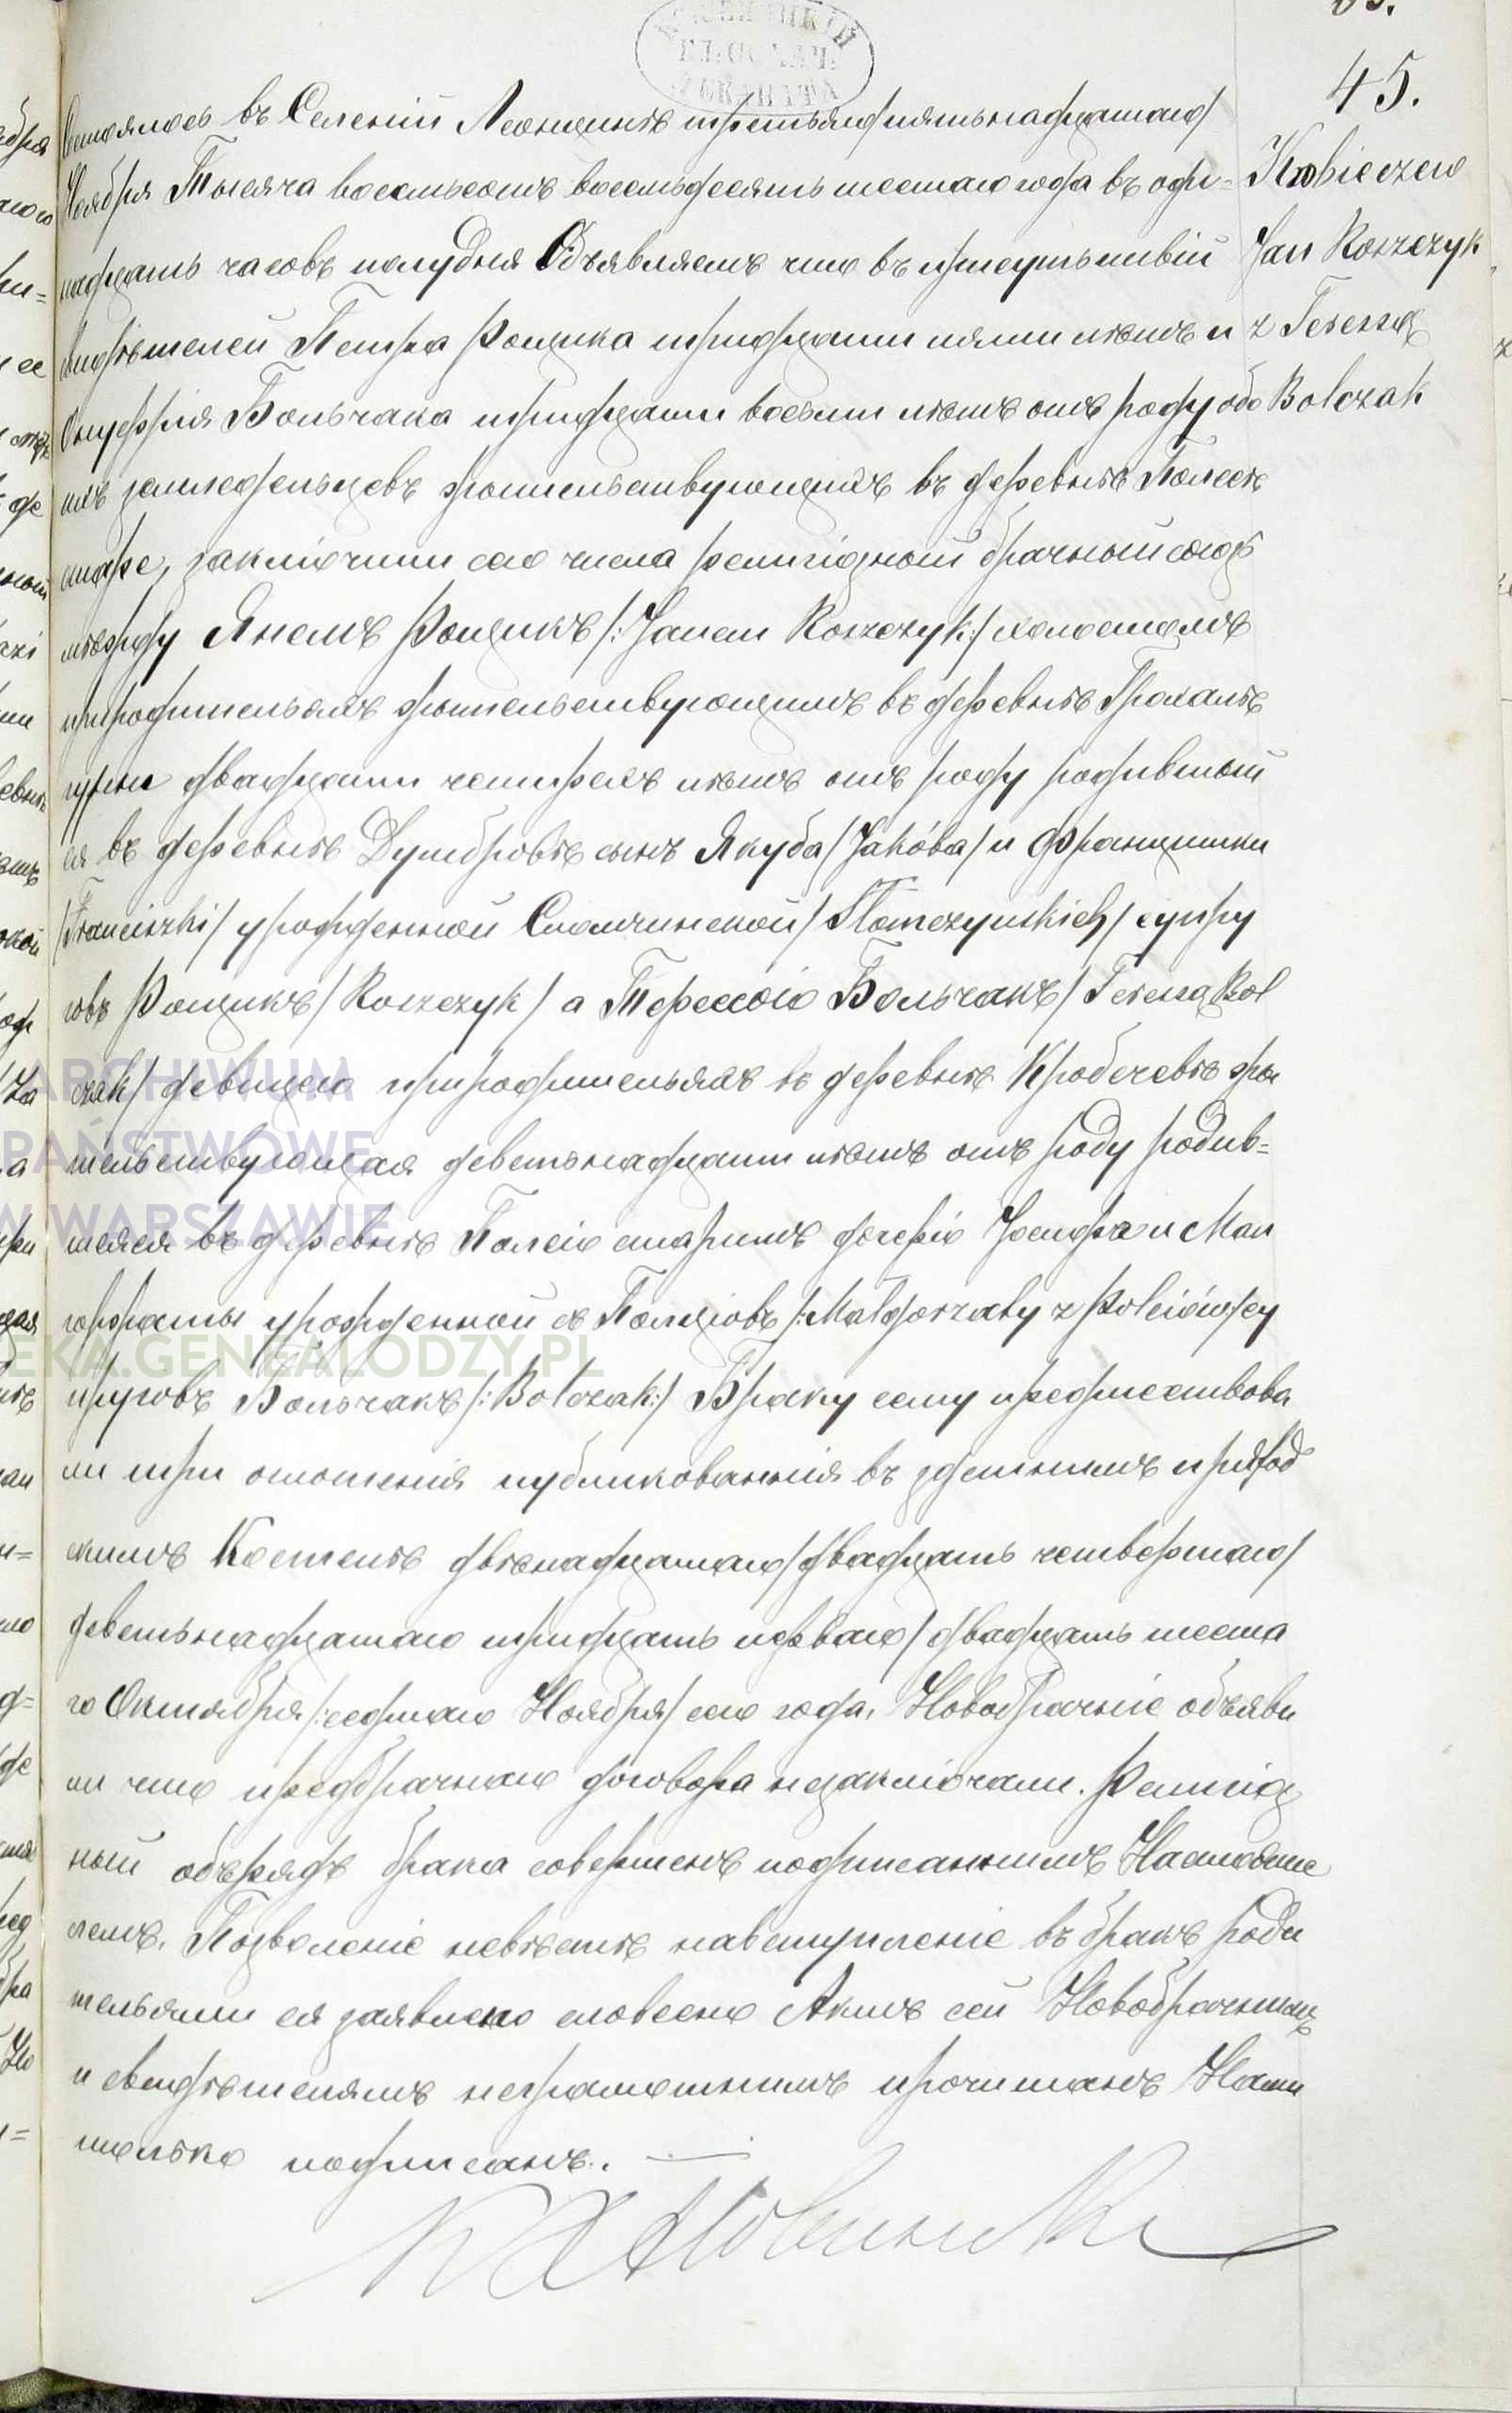 45.
Состоялось въ Селеніи Леонцинѣ третьяго/пятьнадцатаго/
Ноября Тысяча восемьсотъ восемьдесятъ шестаго года въ оди=
Krobiczew
надцать часовъ полудня Объявляемъ что въ присутьствіи
Jan Roszczyk
свидѣтелей Петра Рощика тридцати пяти лѣтъ и
z Teressą
Онуфрія Больчака тридцати восьми лѣтъ отъ роду обо
Bolczak
ихъ земледельцевъ жительствующихъ въ деревнѣ Полесѣ
старе, заключили сего числа религіозный брачный союзъ
между Янемъ Рощикъ/:Janem Roszczyk:/ холостымъ
природительямъ жительствующимъ въ деревнѣ Грохалѣ
гурне двадцати четирехъ лѣтъ отъ роду родившый
ся въ деревнѣ Думбровѣ сынъ Якуба/Jakóba/ и Францишки
/Franciszki/ урожденной Сломчинской/Słomczynskich/ супру
говъ Рощикъ/Roszczyk/ а Терессою Больчакъ/Teressą Bol
czak/ девицею природительяхъ въ деревнѣ Кробичевѣ жи
тельствующая деветьнадцати лѣтъ отъ роду родив=
шеяся въ деревнѣ Полесю старимъ дочерю Іосифа и Мал
горжаты урожденной съ Полціовъ/:Małgorzaty z Polciów/су
пруговъ Больчакъ/:Bolczak:/ Браку сему предшествова
ли три оглошенія публикованнія въ здешнимъ приход
скимъ Костелѣ двѣнадцатаго/двадцать четвертаго/
деветьнадцатаго тридцать перваго/двадцать шеста
го Октября/:седмаго Ноября/ сего года. Новобрачніе объяви
ли что предбрачнаго договора незаключали. Религіоз
ный обърядъ брака совершенъ подписаннимъ Настояте
лемъ. Позволеніе невѣстѣ навступленіе въ бракъ роди
тельями ея заявлено словесно Актъ сей Новобрачнымъ
и свидѣтелямъ неграмотнимъ прочитанъ Нами
только подписанъ.
ARCHIWUM
PAŃSTWOWE
W WARSZAWIE
EKA.GENEALODZY.PL